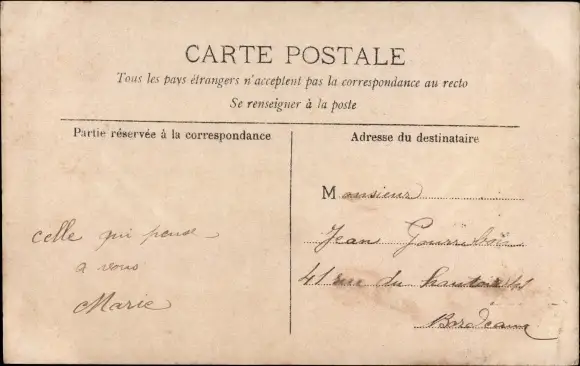 CARTE POSTALE
Tous les pays étrangers n'acceptent pas la correspondance au recto
Se renseigner à la poste
Partie réservée à la correspondance
Adresse du destinataire
celle qui pense
a vous
Marie
Monsieur
Jean
41 rue du
Bordeaux